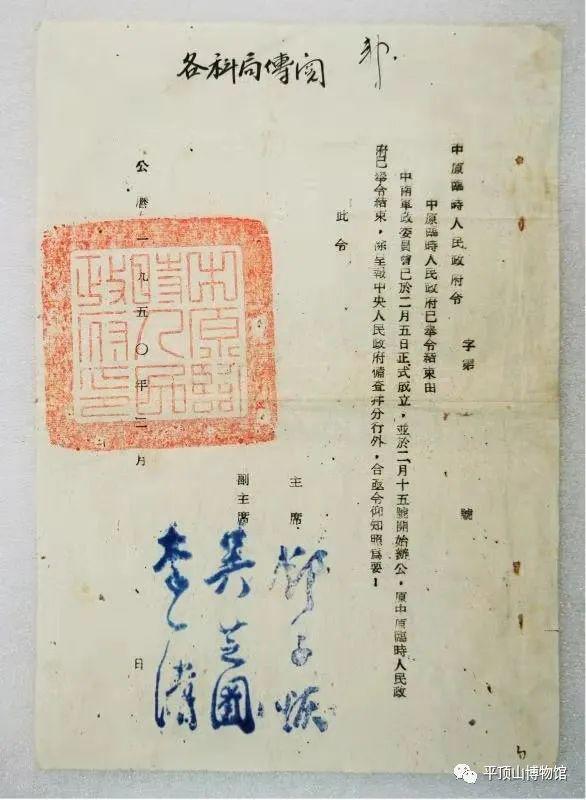 各科局傳閱
中原臨時人民政府令 字第 號
中原臨時人民政府已奉令結束由
中南軍政委員會已於二月五日正式成立，並於二月十五號開始辦公，原中原臨時人民政
府已奉令結束，除呈報中央人民政府備查并分行外，合亟令仰知照爲要！
此令
主席 鄧子恢
副主席 吳芝圃
李一清
公曆一九五〇年二月 日
中原臨
時人民
政府印
平顶山博物馆